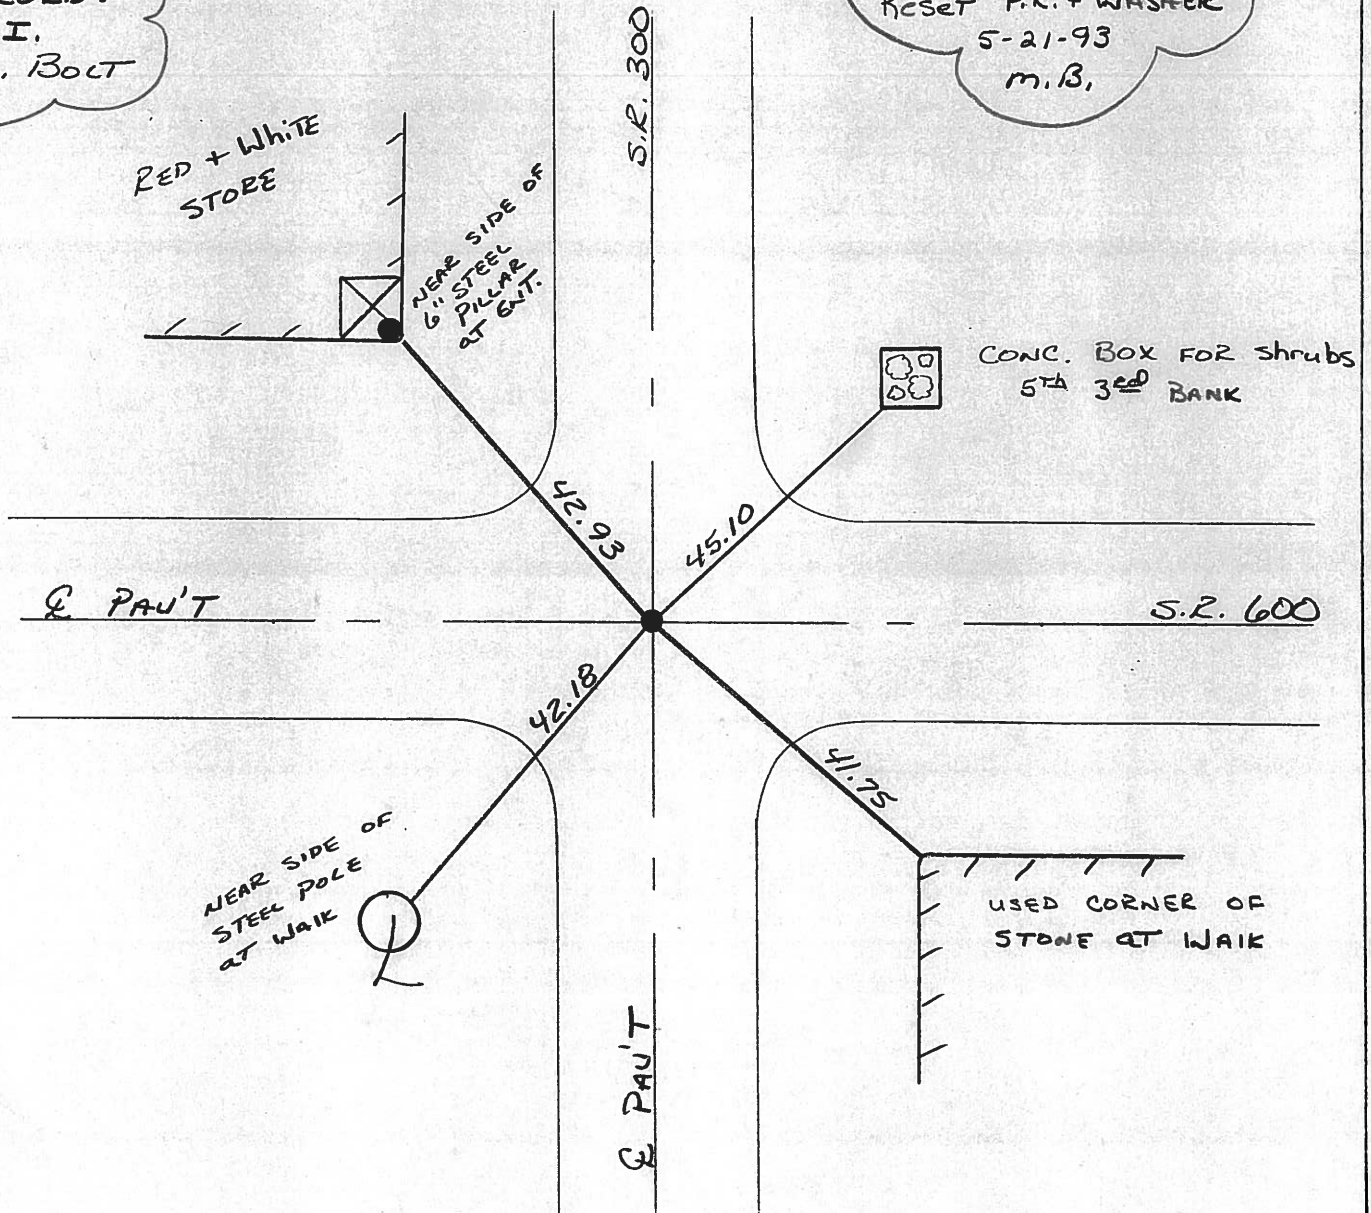 I.
. BOLT
RESET P.K. + WASHER
5-21-93
M.B.
S.R. 300
RED + WHITE
STORE
NEAR SIDE OF
6" STEEL
PILLAR
AT ENT.
CONC. BOX FOR Shrubs
5th 3ed BANK
42.93
45.10
℄ PAV'T
S.R. 600
42.18
41.75
NEAR SIDE OF
STEEL POLE
AT WALK
USED CORNER OF
STONE AT WALK
℄ PAV'T